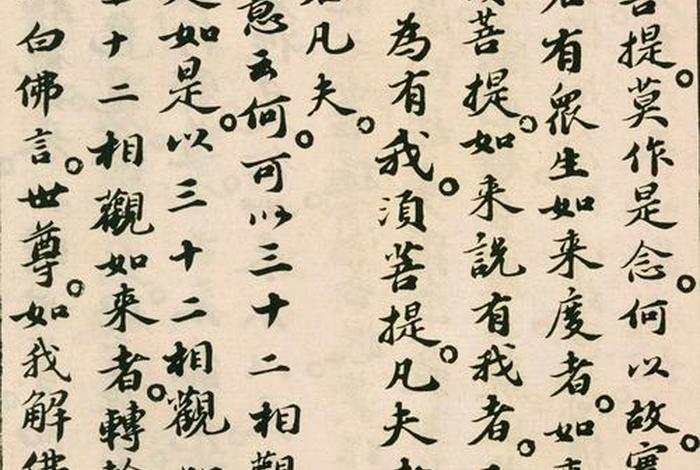 菩提。莫作是念。何以故。實
若有衆生如来度者。如
須菩提。如来說有我者。
為有我。須菩提。凡夫
凡夫。
意云何。可以三十二相觀
是如是。以三十二相觀如
三十二相觀如来者。轉輪
白佛言。世尊。如我解佛